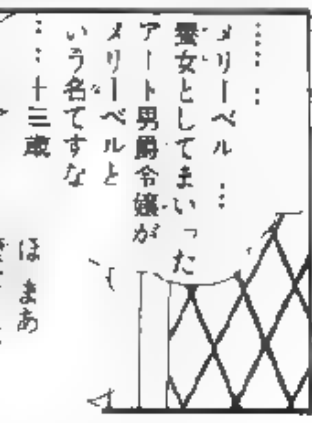 ……
メリーベル…
養女としてまいった
アート男爵令嬢が
メリーベルと
いう名ですな
…十三歳
ほ まあ